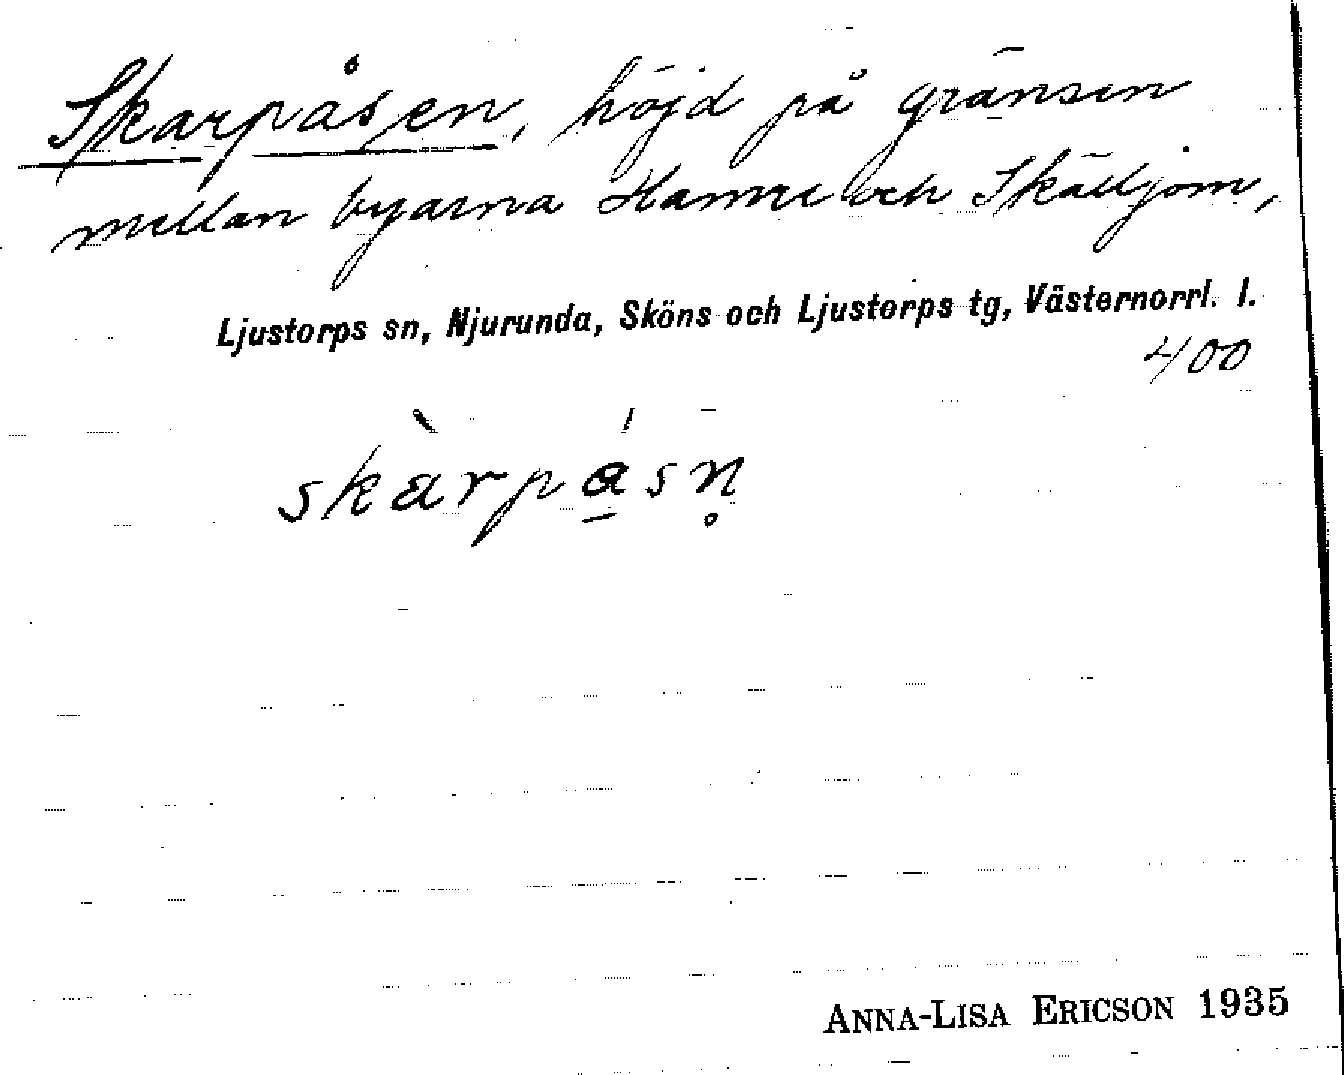 Skarpåsen, höjd på gränsen
mellan byarna Hamre och Skälljom,
Ljustorps sn, Njurunda, Sköns och Ljustorps tg, Västernorrl. l.
400
skàrpá̱sn̥
ANNA-LISA ERICSON 1935